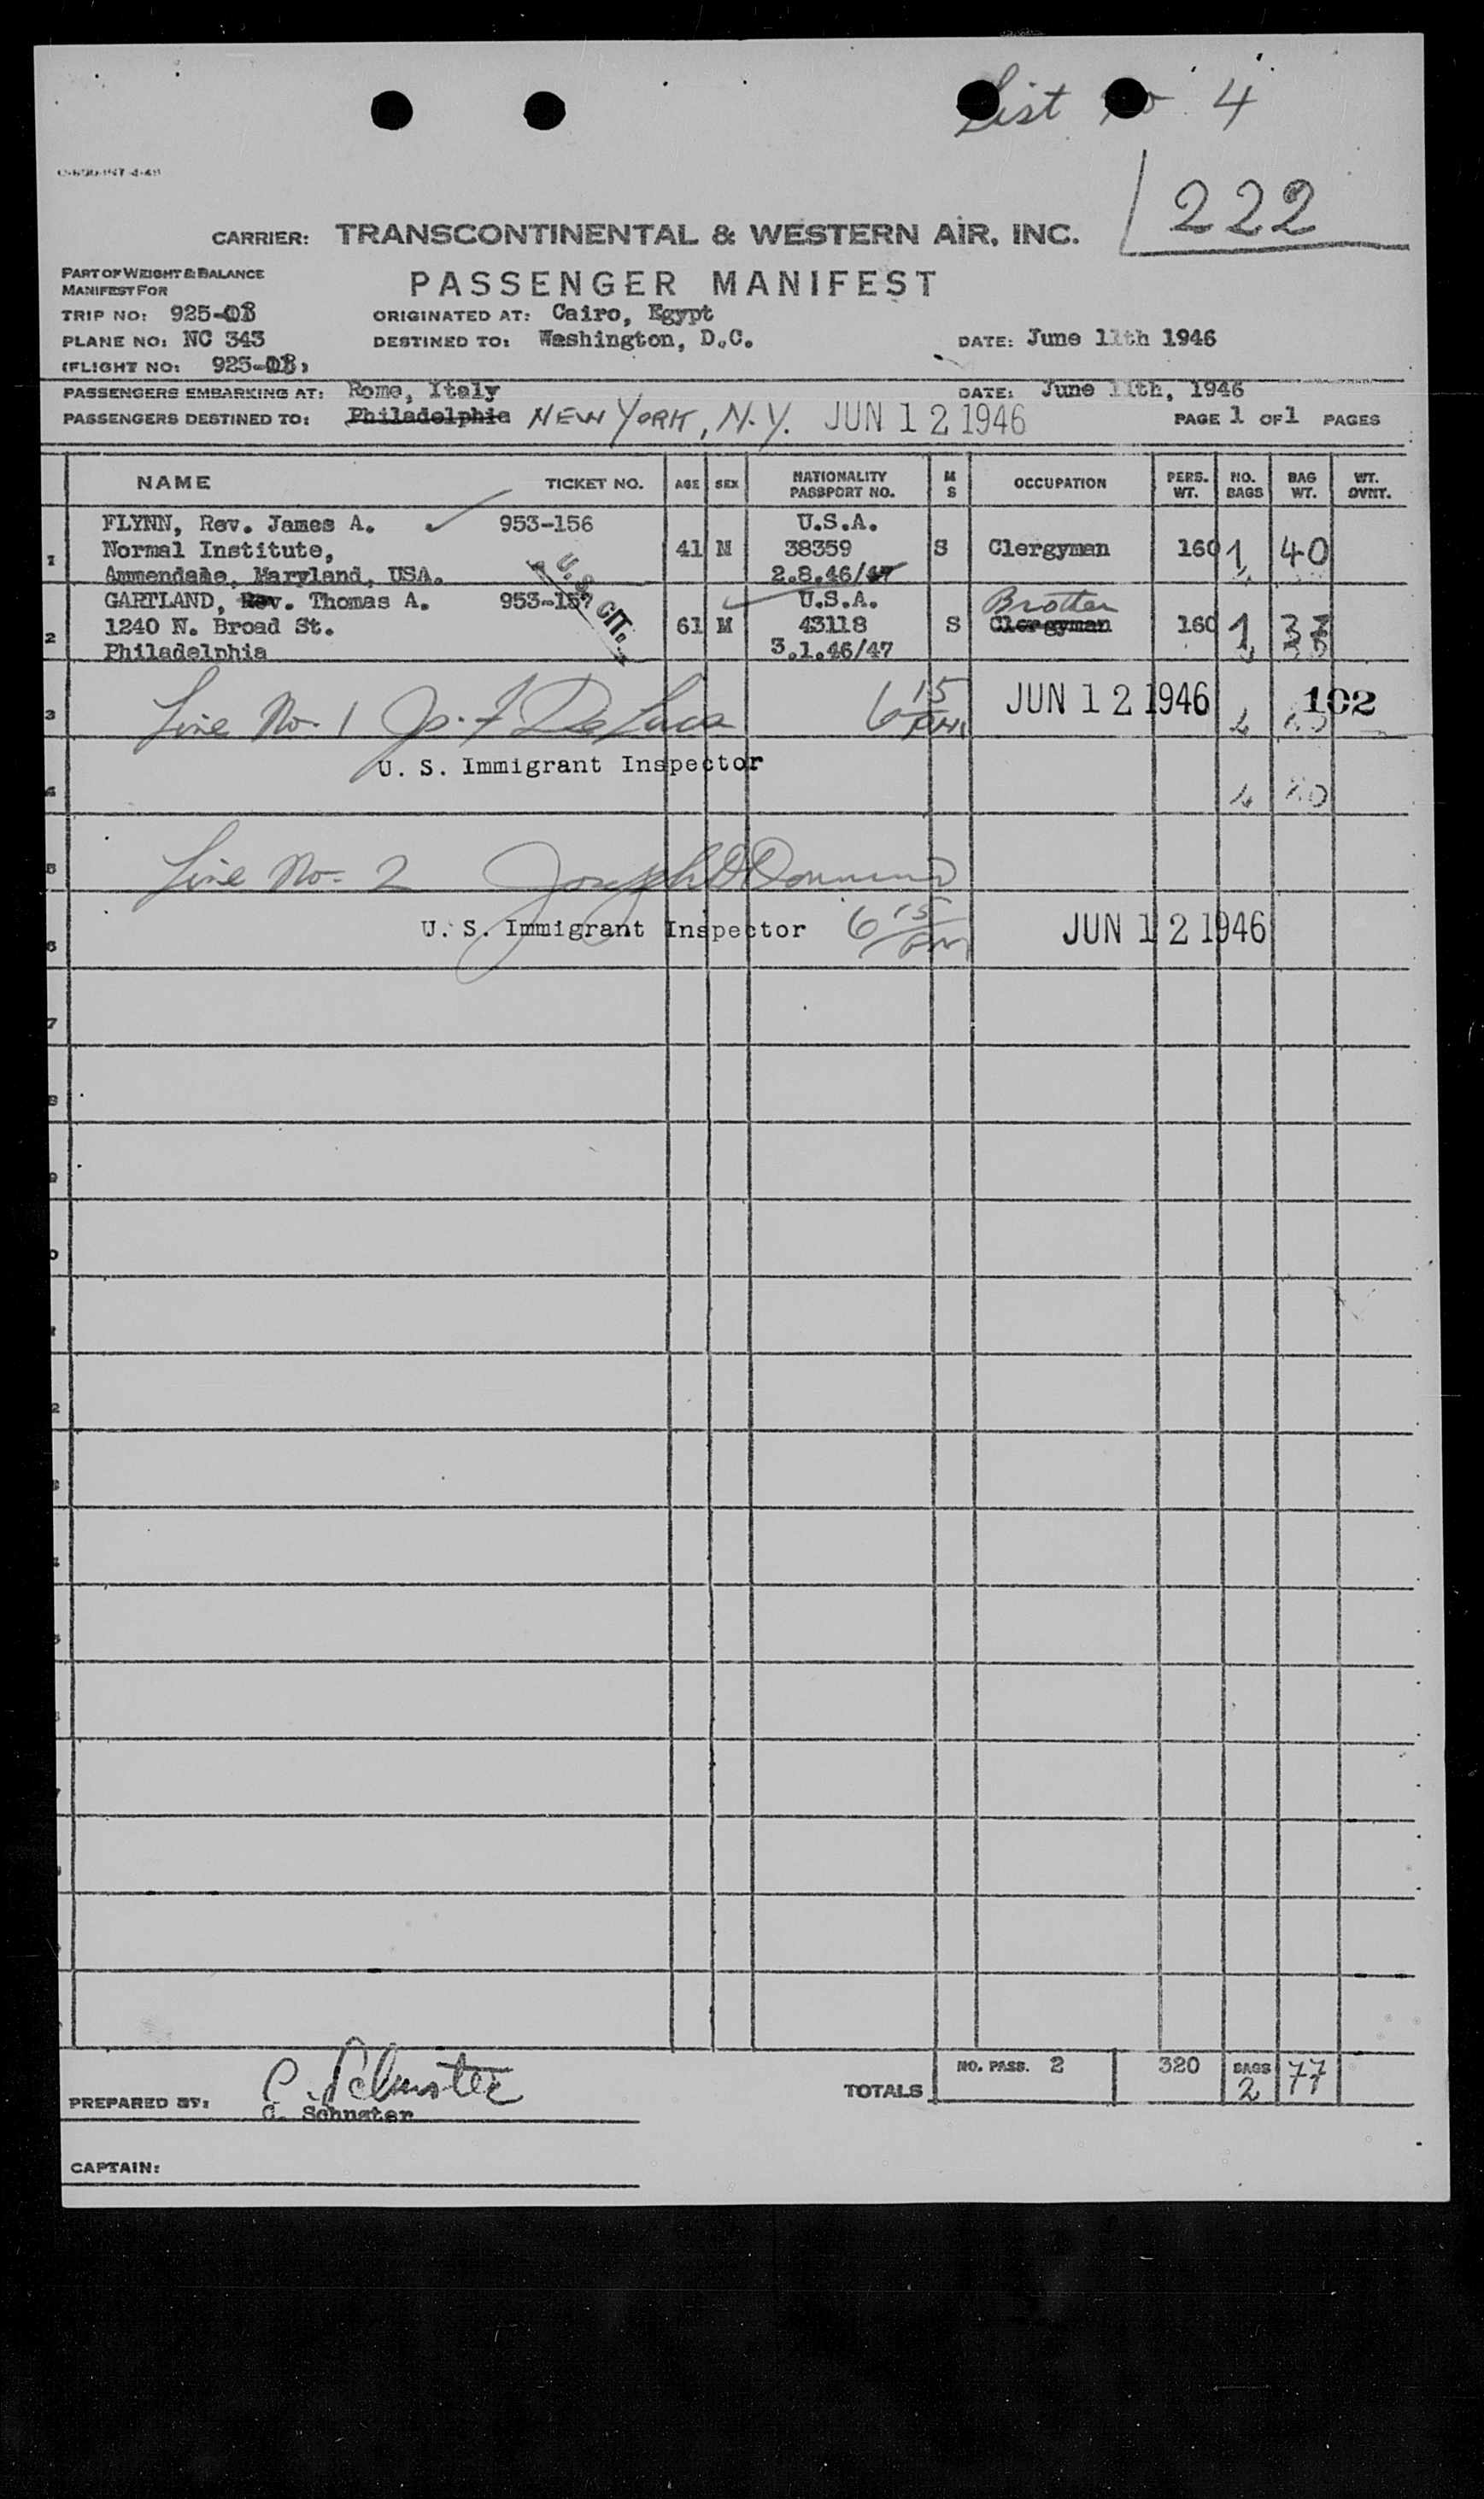 List No 4
222
CARRIER: TRANSCONTINENTAL & WESTERN AIR, INC.
PART OF WEIGHT & BALANCE
MANIFEST FOR
PASSENGER MANIFEST
TRIP NO: 925- ORIGINATED AT: Cairo, Egypt
PLANE NO: NC 343 DESTINED TO: Washington, D.C. DATE: June 11th 1946
(FLIGHT NO: 925-
PASSENGERS EMBARKING AT: Rome, Italy DATE: June 11th, 1946
PASSENGERS DESTINED TO: Philadelphia NEW YORK, N.Y. JUN 12 1946 PAGE 1 OF 1 PAGES
NAME TICKET NO. AGE SEX NATIONALITY PASSPORT NO. M S OCCUPATION PERS. WT. NO. BAGS BAG WT. WT. OVNT.
FLYNN, Rev. James A. 953-156 U.S.A.
1 Normal Institute, 41 M 38359 S Clergyman 160 1 40
Ammendale, Maryland, USA. 2.8.46/47
U.S. CIT.
GARTLAND, Rev. Thomas A. 953-157 U.S.A. Brother
2 1240 N. Broad St. 61 M 43118 S Clergyman 160 1 37
Philadelphia 3.1.46/47
3 Line No. 1 Jo. F DeLuca 6 15 PM JUN 12 1946 102
U. S. Immigrant Inspector
4
5 Line No. 2 Joseph
6 U. S. Immigrant Inspector 6 15 PM JUN 12 1946
7
NO. PASS. 2 320 BAGS 2 77
TOTALS
PREPARED BY: C. Schuster
C. Schuster
CAPTAIN: